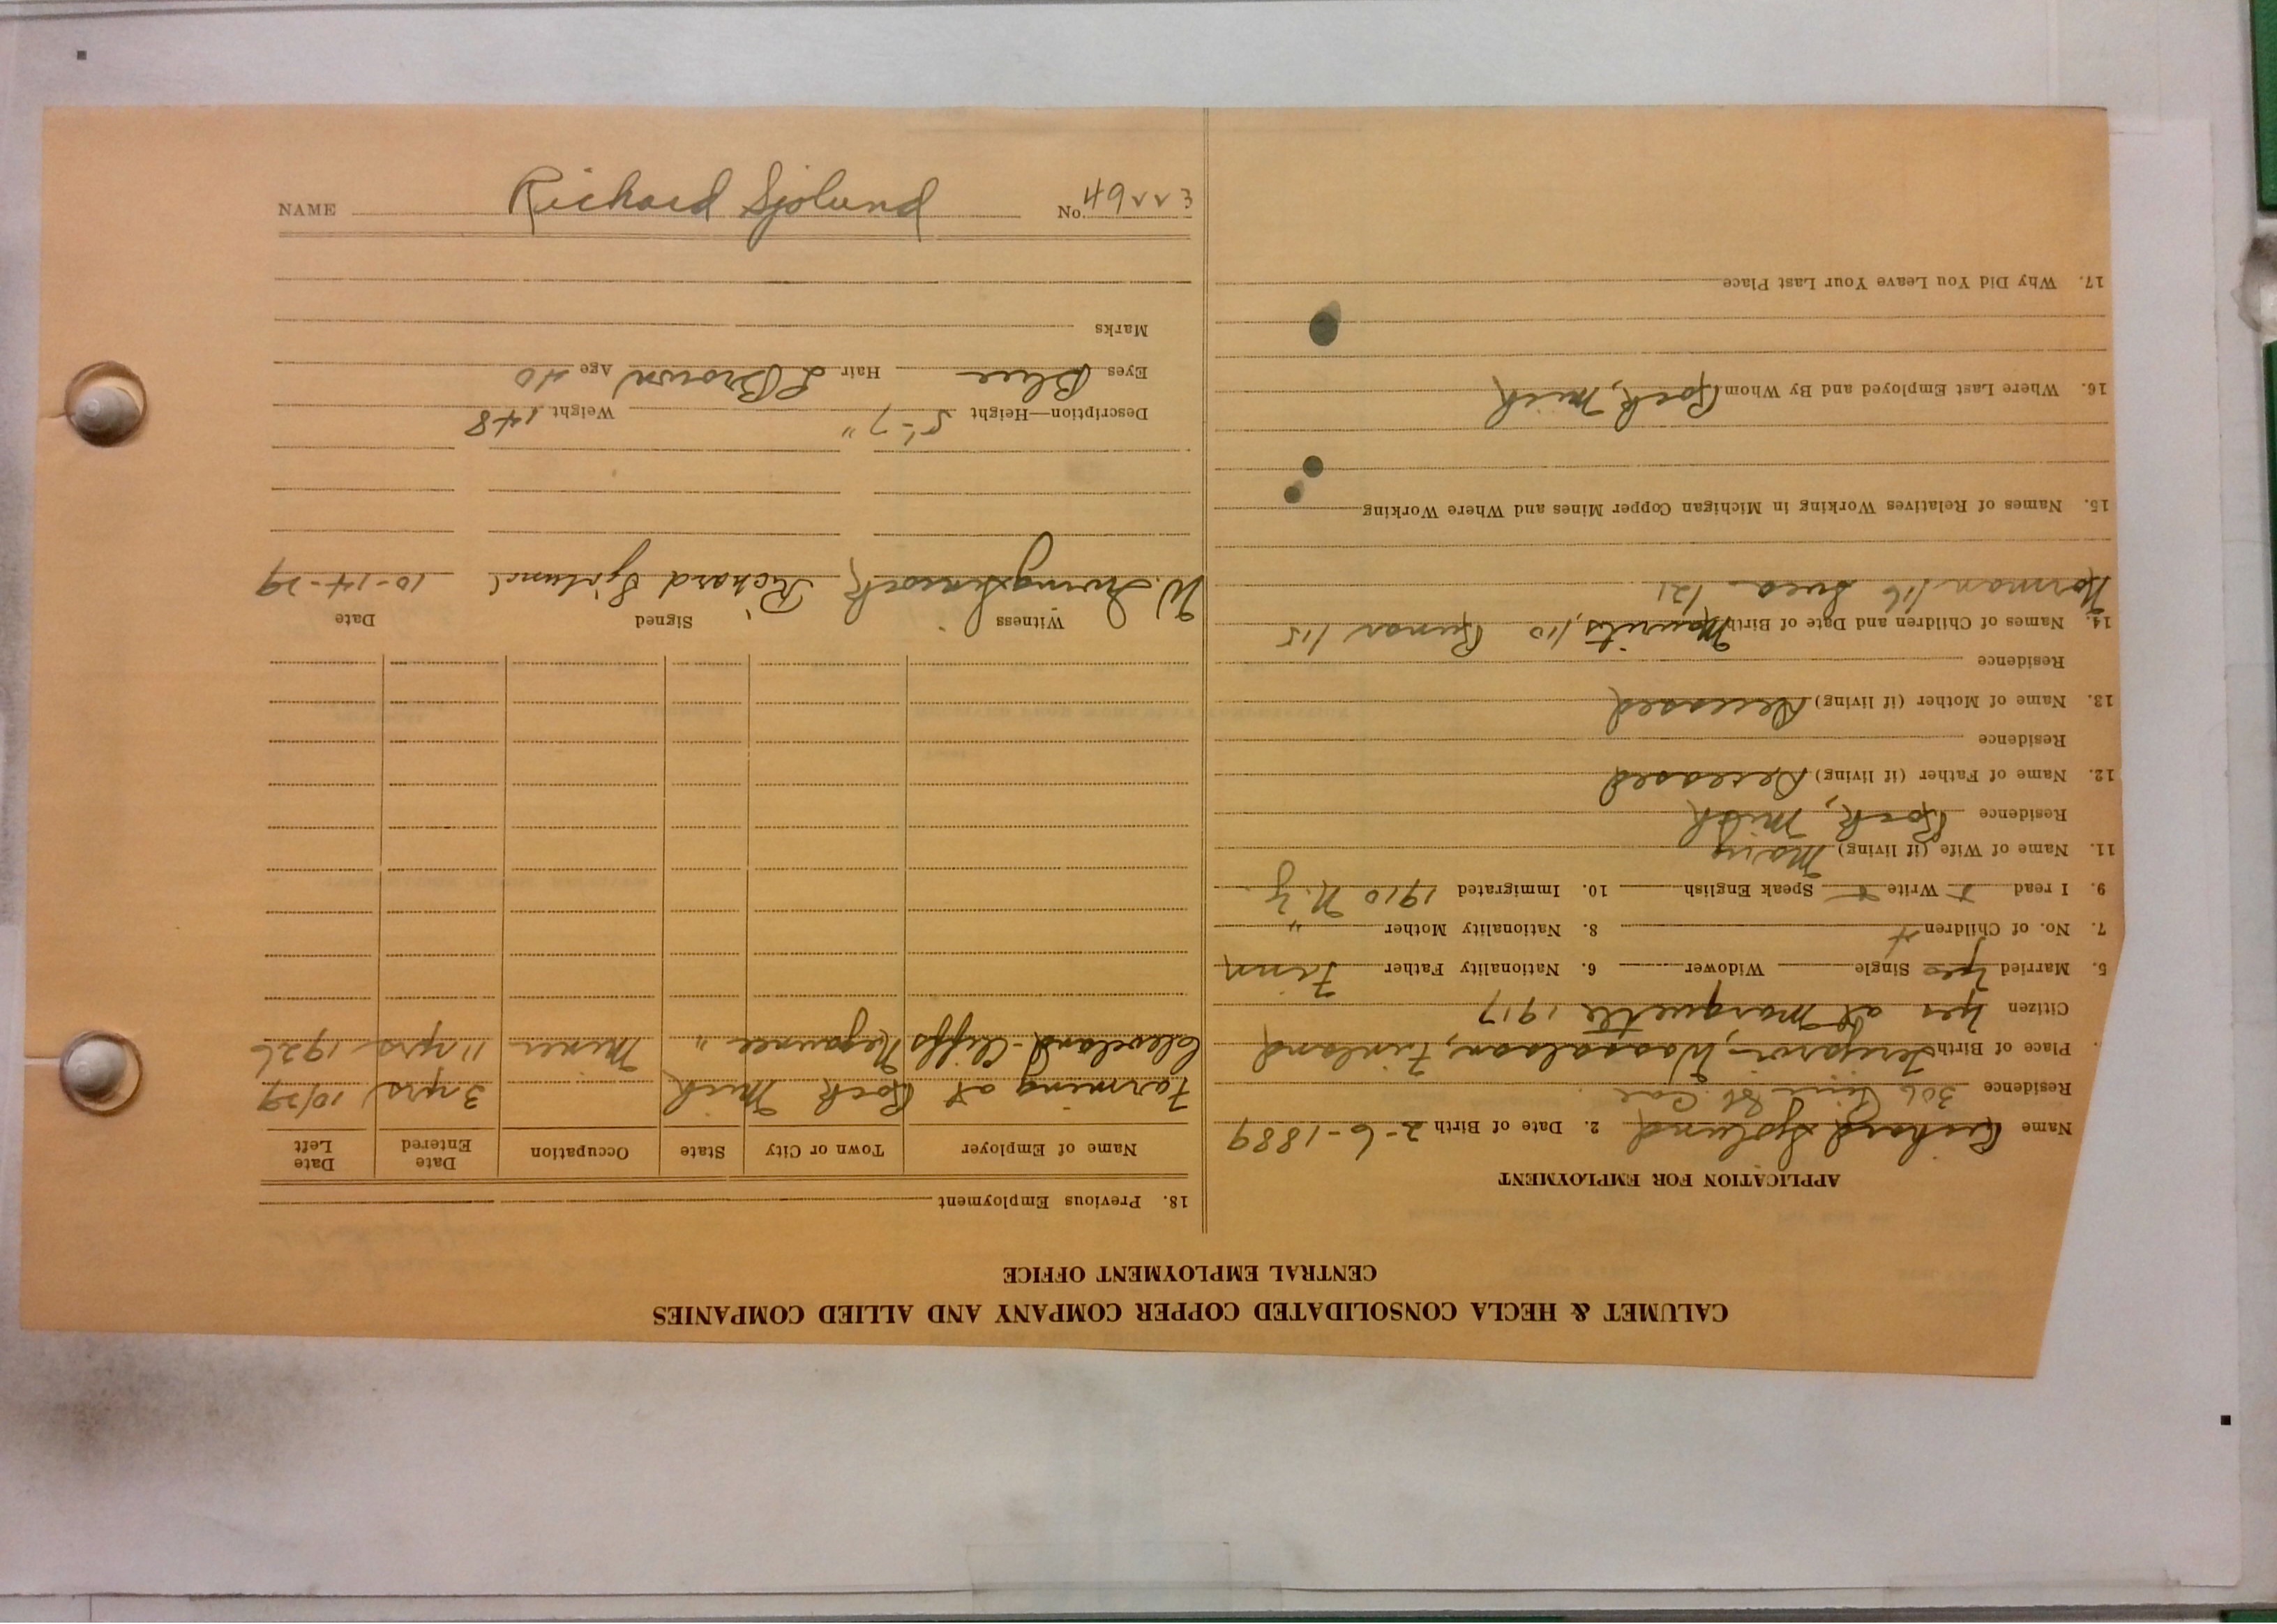 CALUMET & HECLA CONSOLIDATED COPPER COMPANY AND ALLIED COMPANIES
CENTRAL EMPLOYMENT OFFICE
APPLICATION FOR EMPLOYMENT
Name Richard Sjolund 2. Date of Birth 2-6-1889
Residence 306 Pine St. Cal
Place of Birth Finland
Citizen Yes at Marquette 1917
5. Married Yes Single Widower 6. Nationality Father Finn
7. No. of Children 4 8. Nationality Mother "
9. I read Write Speak English 10. Immigrated 1910 N.Y.
11. Name of Wife (if living) Mary
Residence Rock, Mich
12. Name of Father (if living) Deceased
Residence
13. Name of Mother (if living) Deceased
Residence
14. Names of Children and Date of Birth Maurits, 110 Gunnar 115
Norman 116 Svea 121
15. Names of Relatives Working in Michigan Copper Mines and Where Working
16. Where Last Employed and By Whom Rock, Mich
17. Why Did You Leave Your Last Place
18. Previous Employment
Name of Employer Town or City State Occupation Date Entered Date Left
Farming at Rock Mich 3 yrs 10/29
Cleveland-Cliffs Negaunee " Miner 11 yrs 1926
Witness Signed Date
W. Richard Sjolund 10-14-29
Description—Height 5'-7" Weight 148
Eyes Blue Hair L Brown Age 40
Marks
NAME Richard Sjolund No. 49223